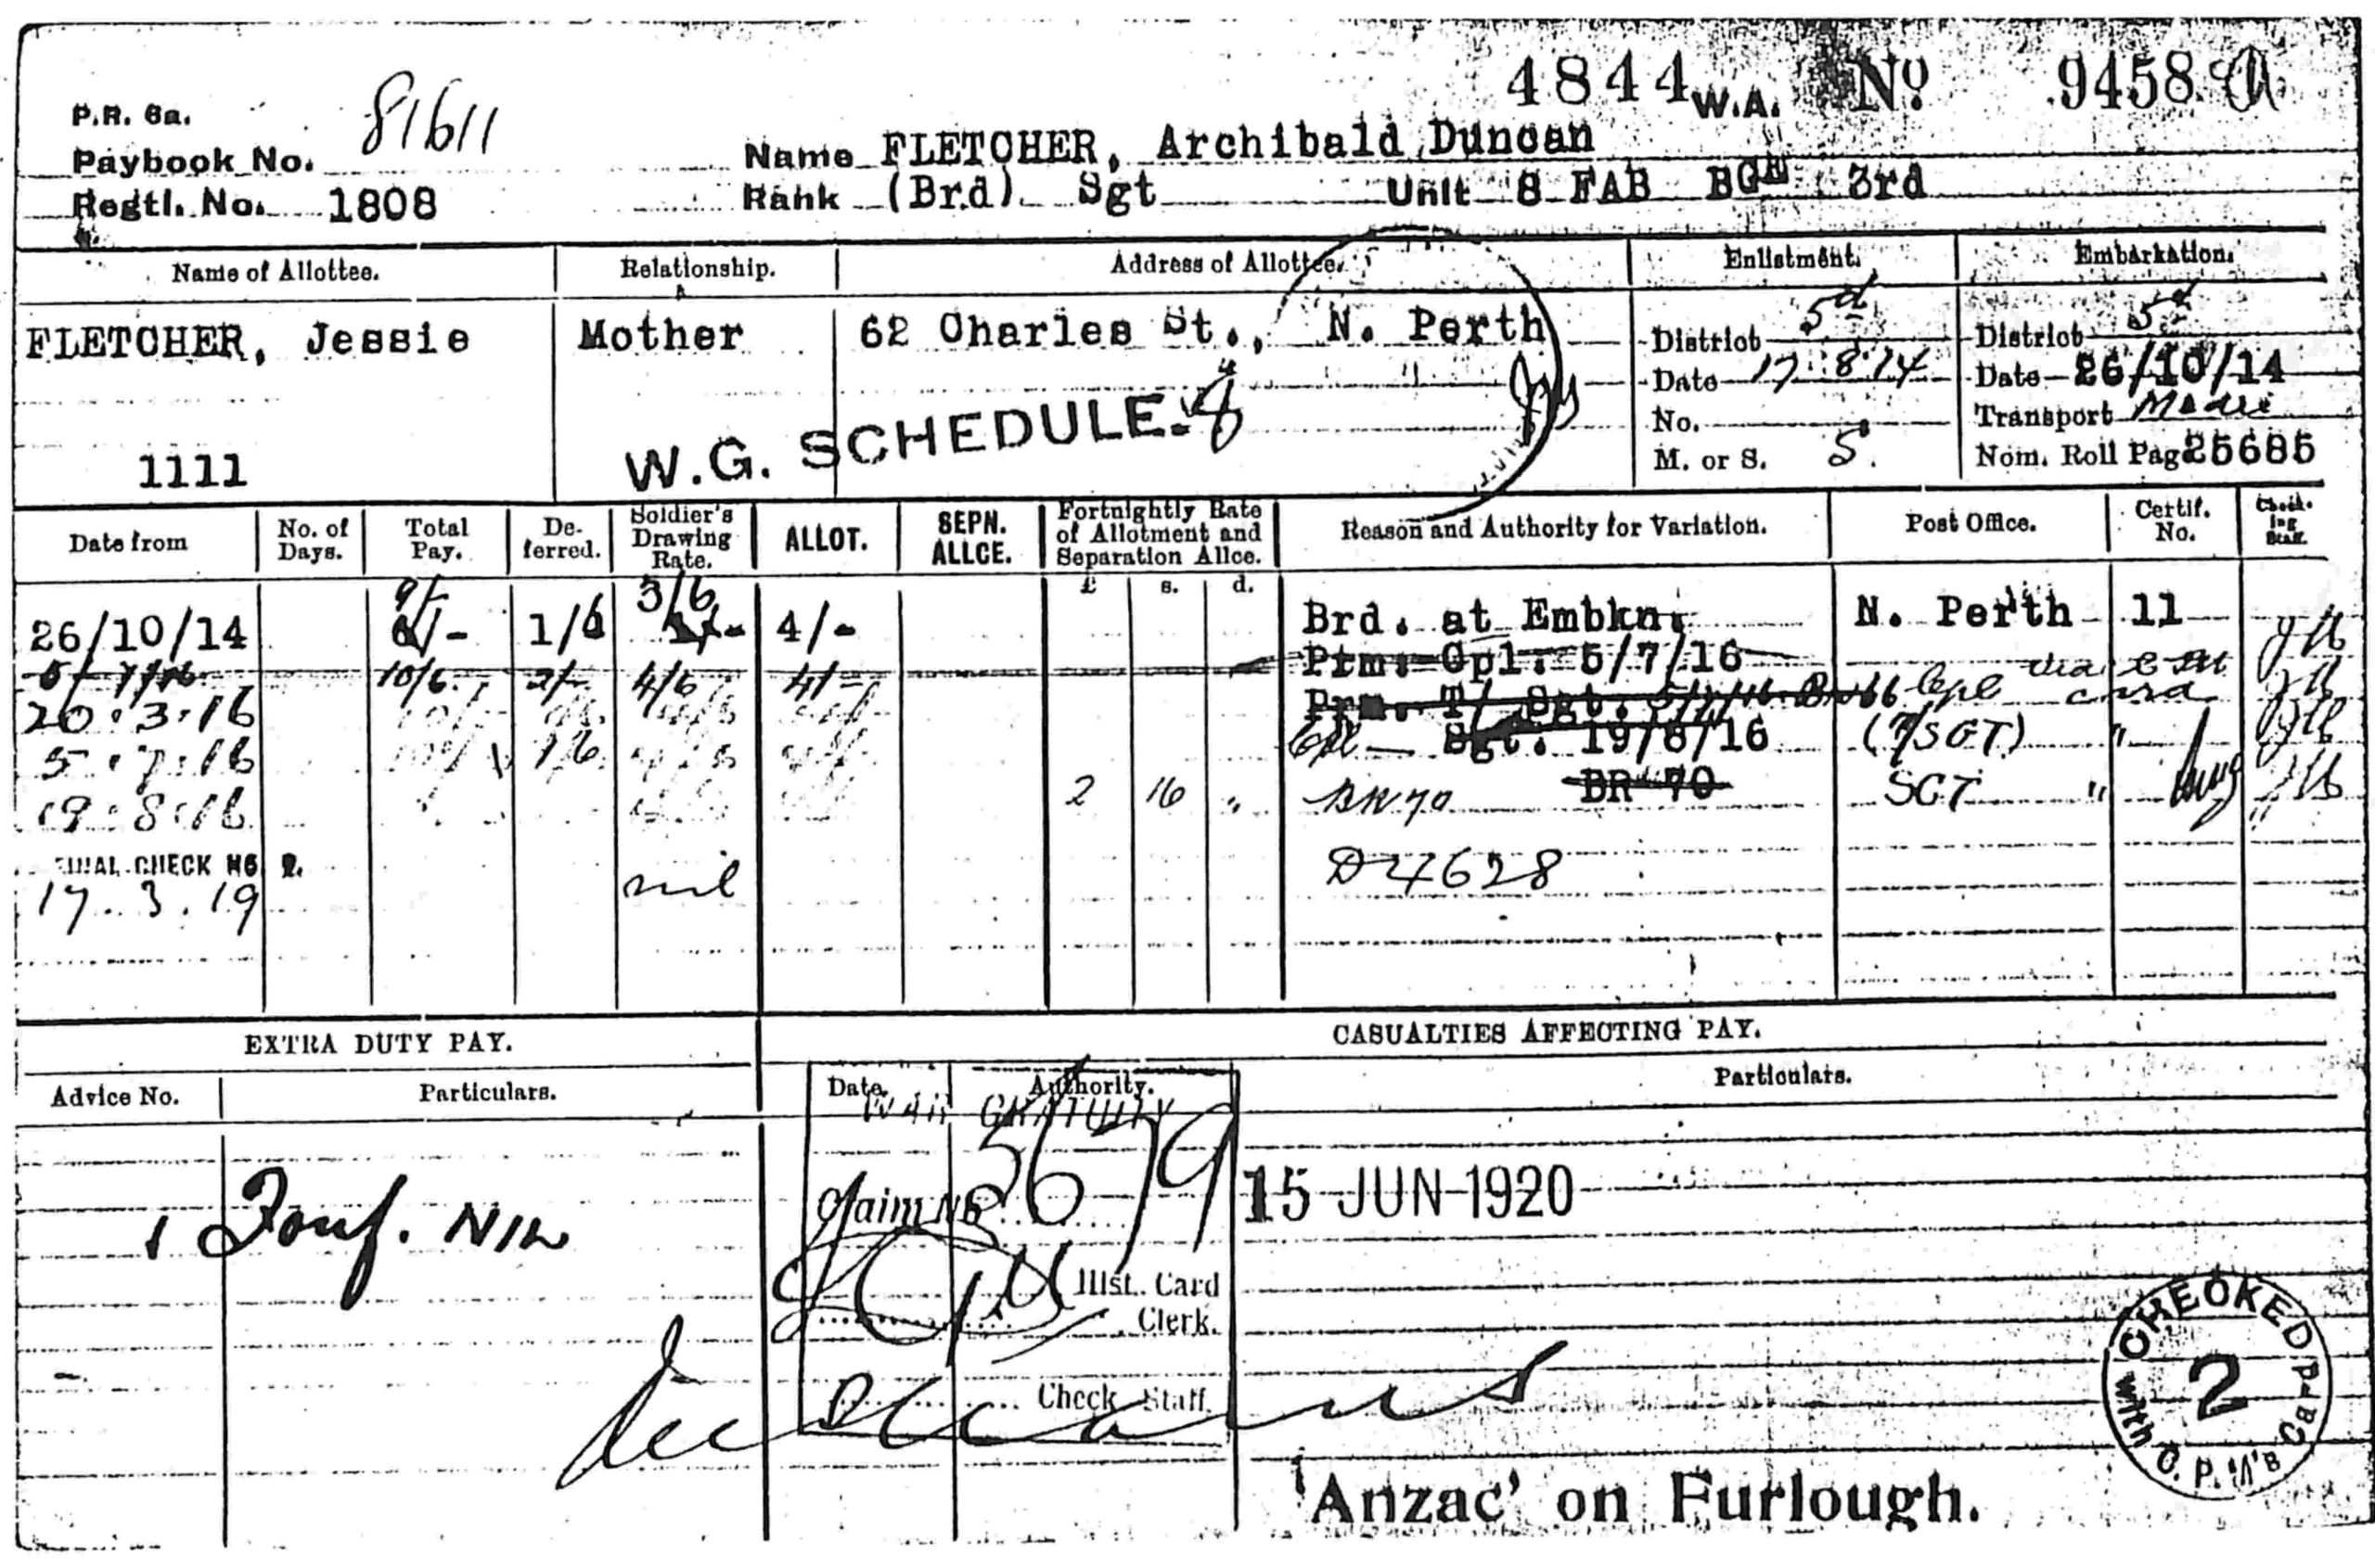 4844 W.A. Nº 9458
P.R. 6a.
Paybook No. 81611
Name FLETCHER, Archibald Duncan
Regtl. No. 1808
Rank (Brd) Sgt Unit 8 FAB 3rd
Name of Allottee. Relationship. Address of Allottee. Enlistment. Embarkation.
FLETCHER, Jessie Mother 62 Charles St., N. Perth
District 5d District 5d
Date 17.8.14 Date 26/10/14
No. Transport
M. or S. S. Nom. Roll Page 25685
1111 W.G. SCHEDULE. 8
Date from No. of Days. Total Pay. Deferred. Soldier's Drawing Rate. ALLOT. SEPN. ALLCE. Fortnightly Rate of Allotment and Separation Allce. Reason and Authority for Variation. Post Office. Certif. No. Checking Staff.
£ s. d.
26/10/14 9/- 1/6 3/6 4/- Brd. at Embkn. N. Perth 11
10/6 2/- 4/6 4/- Prm. Cpl. 5/7/16
20.3.16 Prm. T/ Sgt. Cpl
5.7.16 1/6 Cpl Sgt. 19/8/16 (T/SGT) "
19.8.16 2 16 " BR 70 BR 70 SGT "
FINAL CHECK NO 2.
17.3.19 nil D4628
EXTRA DUTY PAY. CASUALTIES AFFECTING PAY.
Advice No. Particulars. Date. Authority. Particulars.
WAR GRATUITY
Claim No 5679 15 JUN 1920
1
Hist. Card
Clerk.
Check Staff.
CHECKED with C.P.M's Card
2
'Anzac' on Furlough.